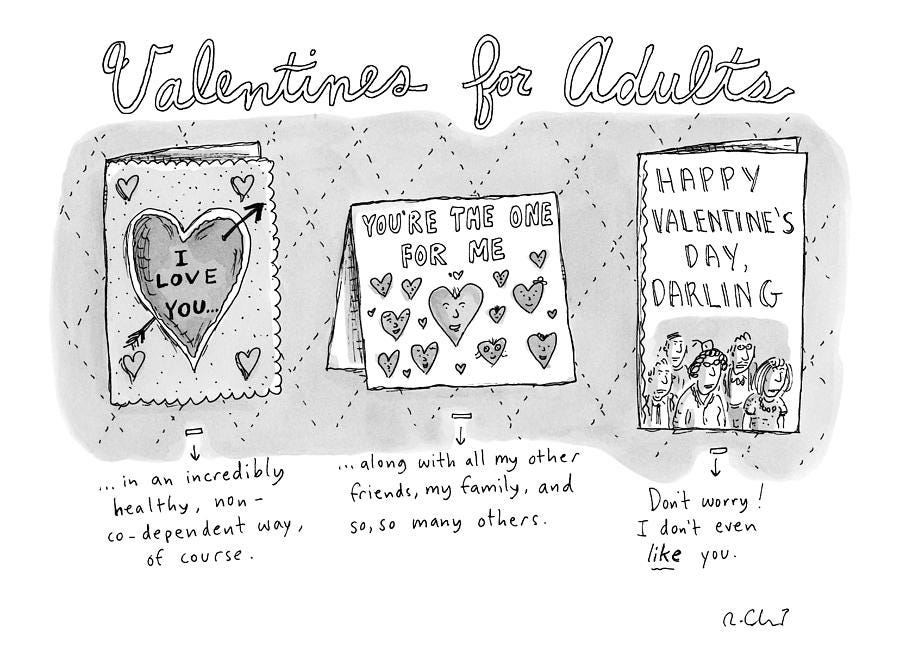 Valentines for Adults
I
LOVE
YOU...
...in an incredibly
healthy, non-
co-dependent way,
of course.
YOU'RE THE ONE
FOR ME
...along with all my other
friends, my family, and
so, so many others.
HAPPY
VALENTINE'S
DAY,
DARLING
Don't worry!
I don't even
like you.
R. Ch